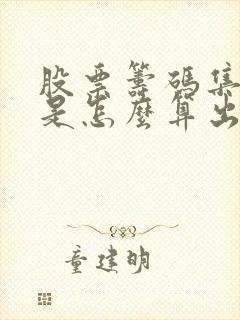 股票籌碼集
是怎麼算出
童建明